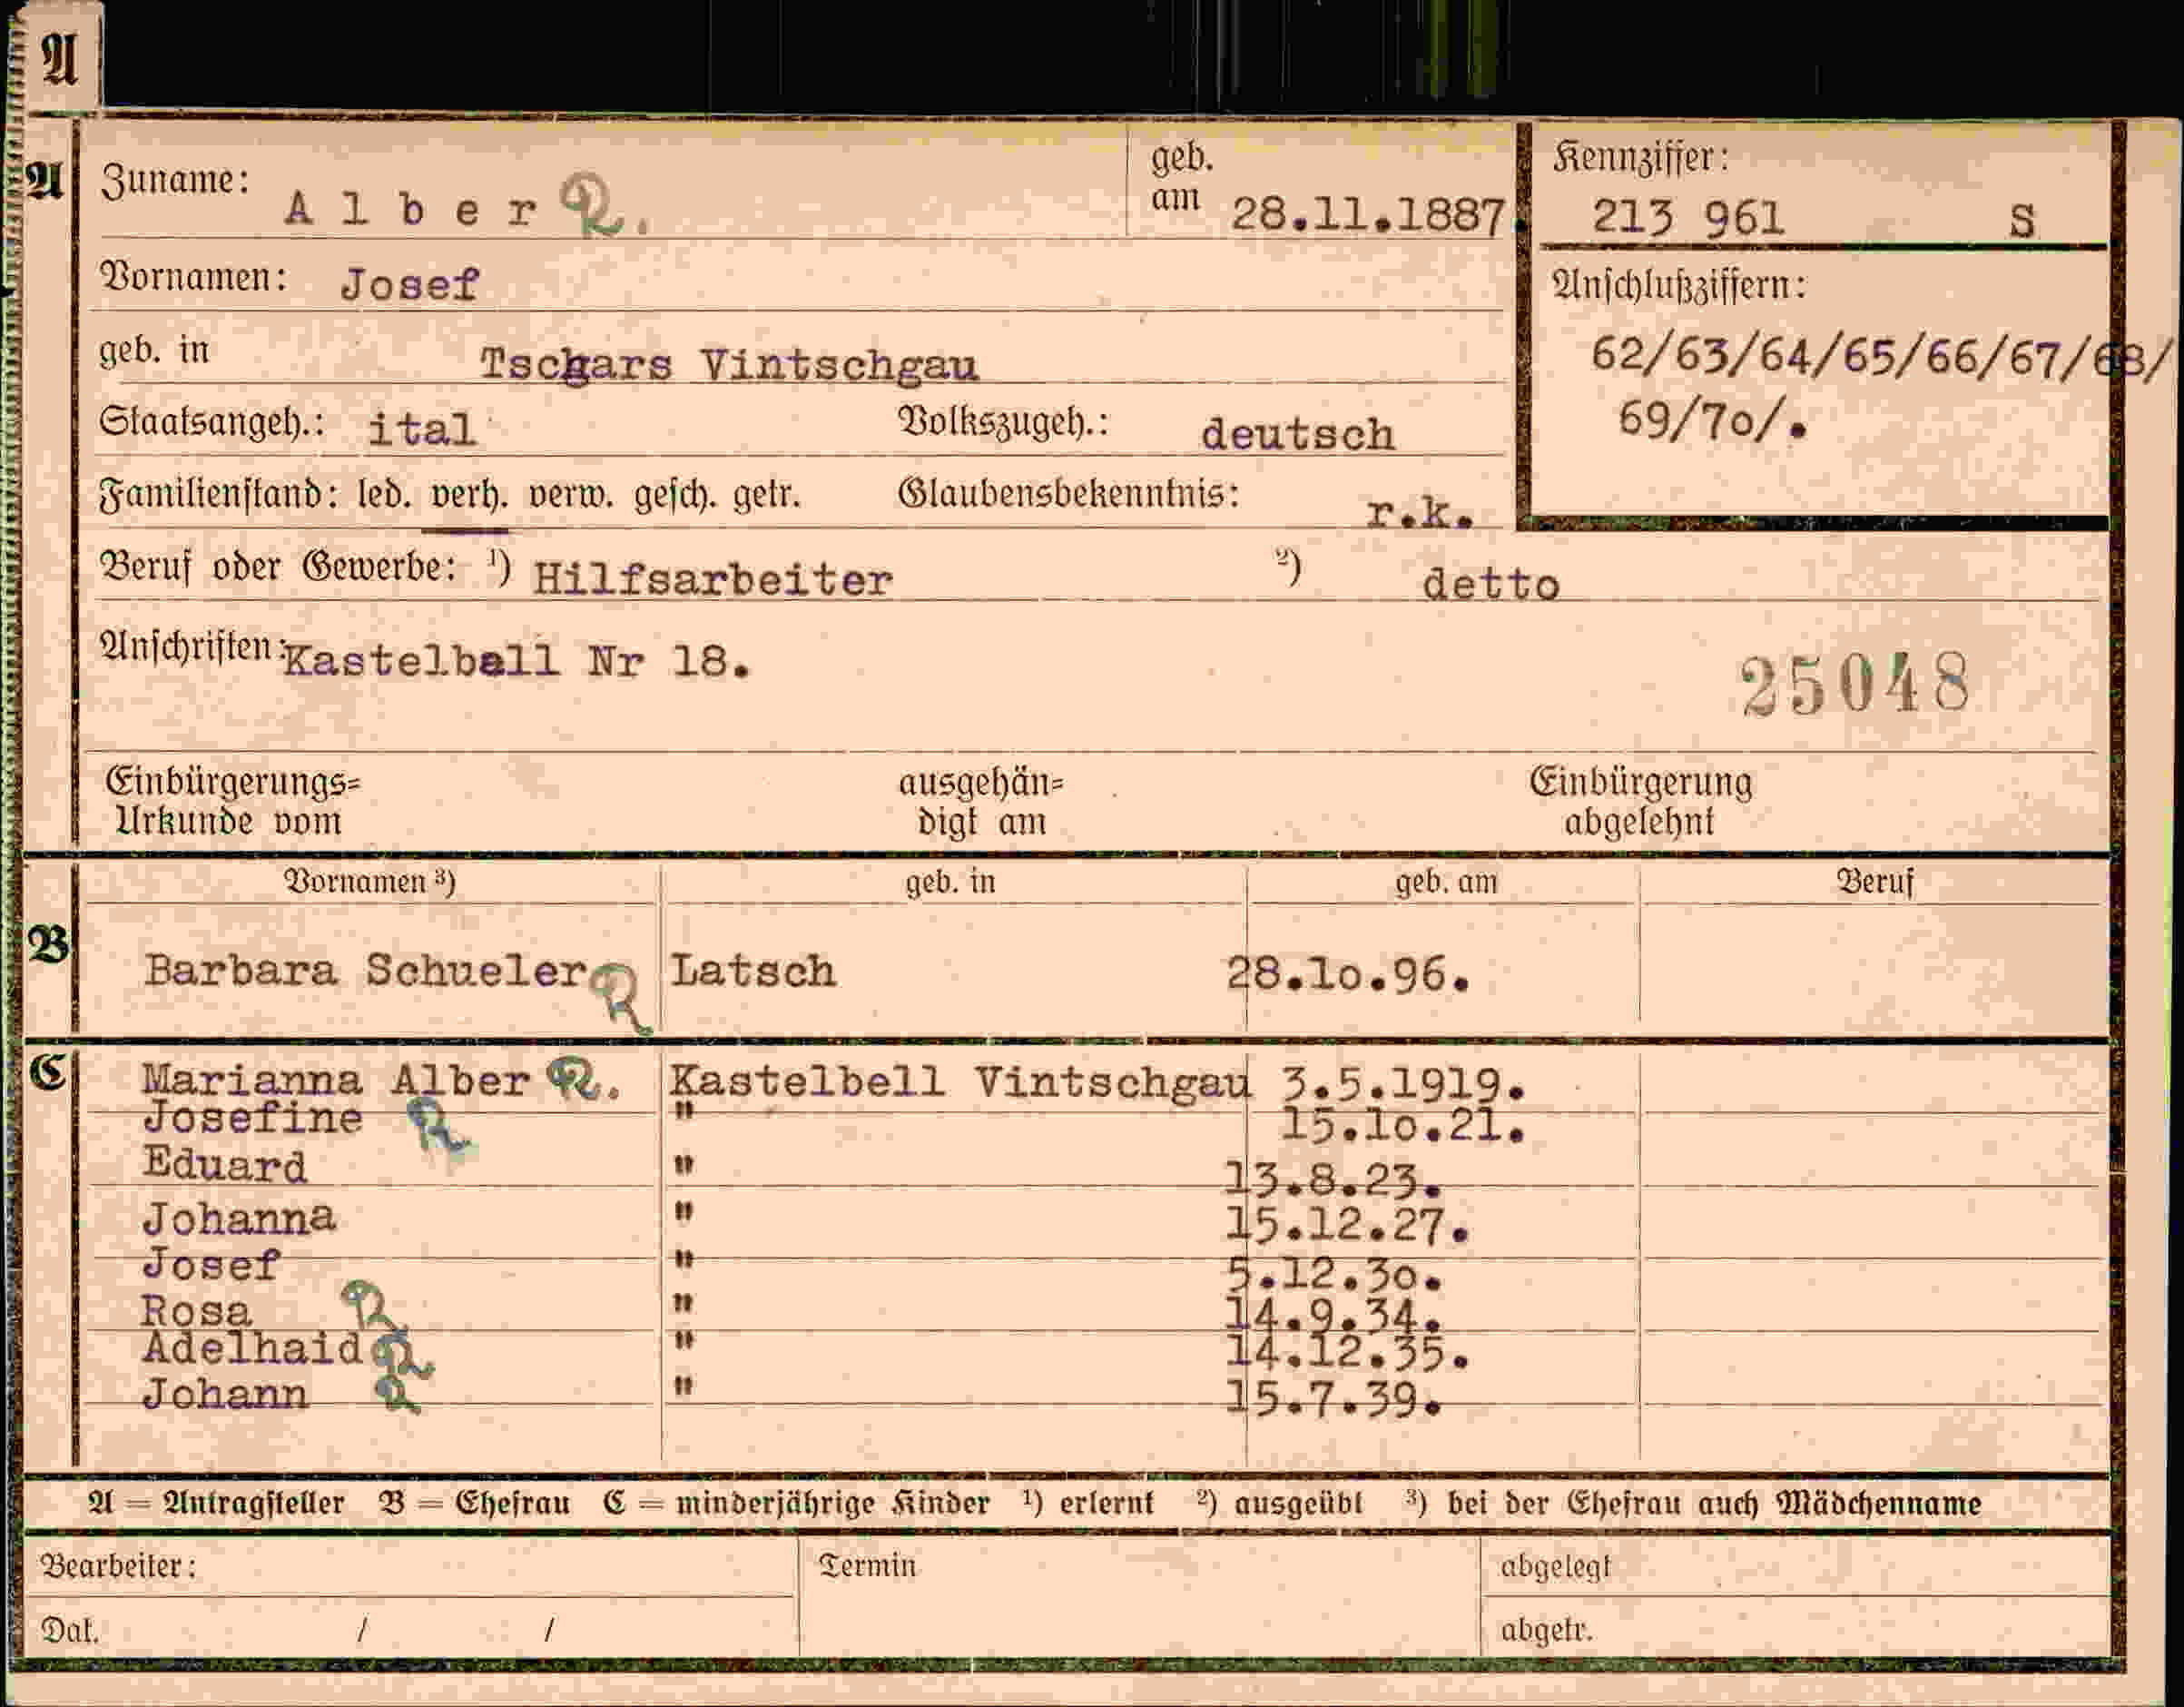 A
A
Zuname: Alber R.
geb. am 28.11.1887.
Kennziffer:
213 961 S
Vornamen: Josef
Anschlußziffern:
62/63/64/65/66/67/68/
69/7o/.
geb. in Tschars Vintschgau
Staatsangeh.: ital Volkszugeh.: deutsch
Familienstand: led. verh. verw. gesch. getr. Glaubensbekenntnis: r.k.
Beruf oder Gewerbe: ¹) Hilfsarbeiter ²) detto
Anschriften: Kastelbell Nr 18.
25048
Einbürgerungs= ausgehän= Einbürgerung
Urkunde vom digt am abgelehnt
Vornamen ³) geb. in geb. am Beruf
B
Barbara Schueler R Latsch 28.1o.96.
C
Marianna Alber R. Kastelbell Vintschgau 3.5.1919.
Josefine R " 15.1o.21.
Eduard " 13.8.23.
Johanna " 15.12.27.
Josef " 5.12.3o.
Rosa R " 14.9.34.
Adelhaid R " 14.12.35.
Johann R " 15.7.39.
A = Antragsteller B = Ehefrau C = minderjährige Kinder ¹) erlernt ²) ausgeübt ³) bei der Ehefrau auch Mädchenname
Bearbeiter: Termin abgelegt
Dat. / / abgetr.